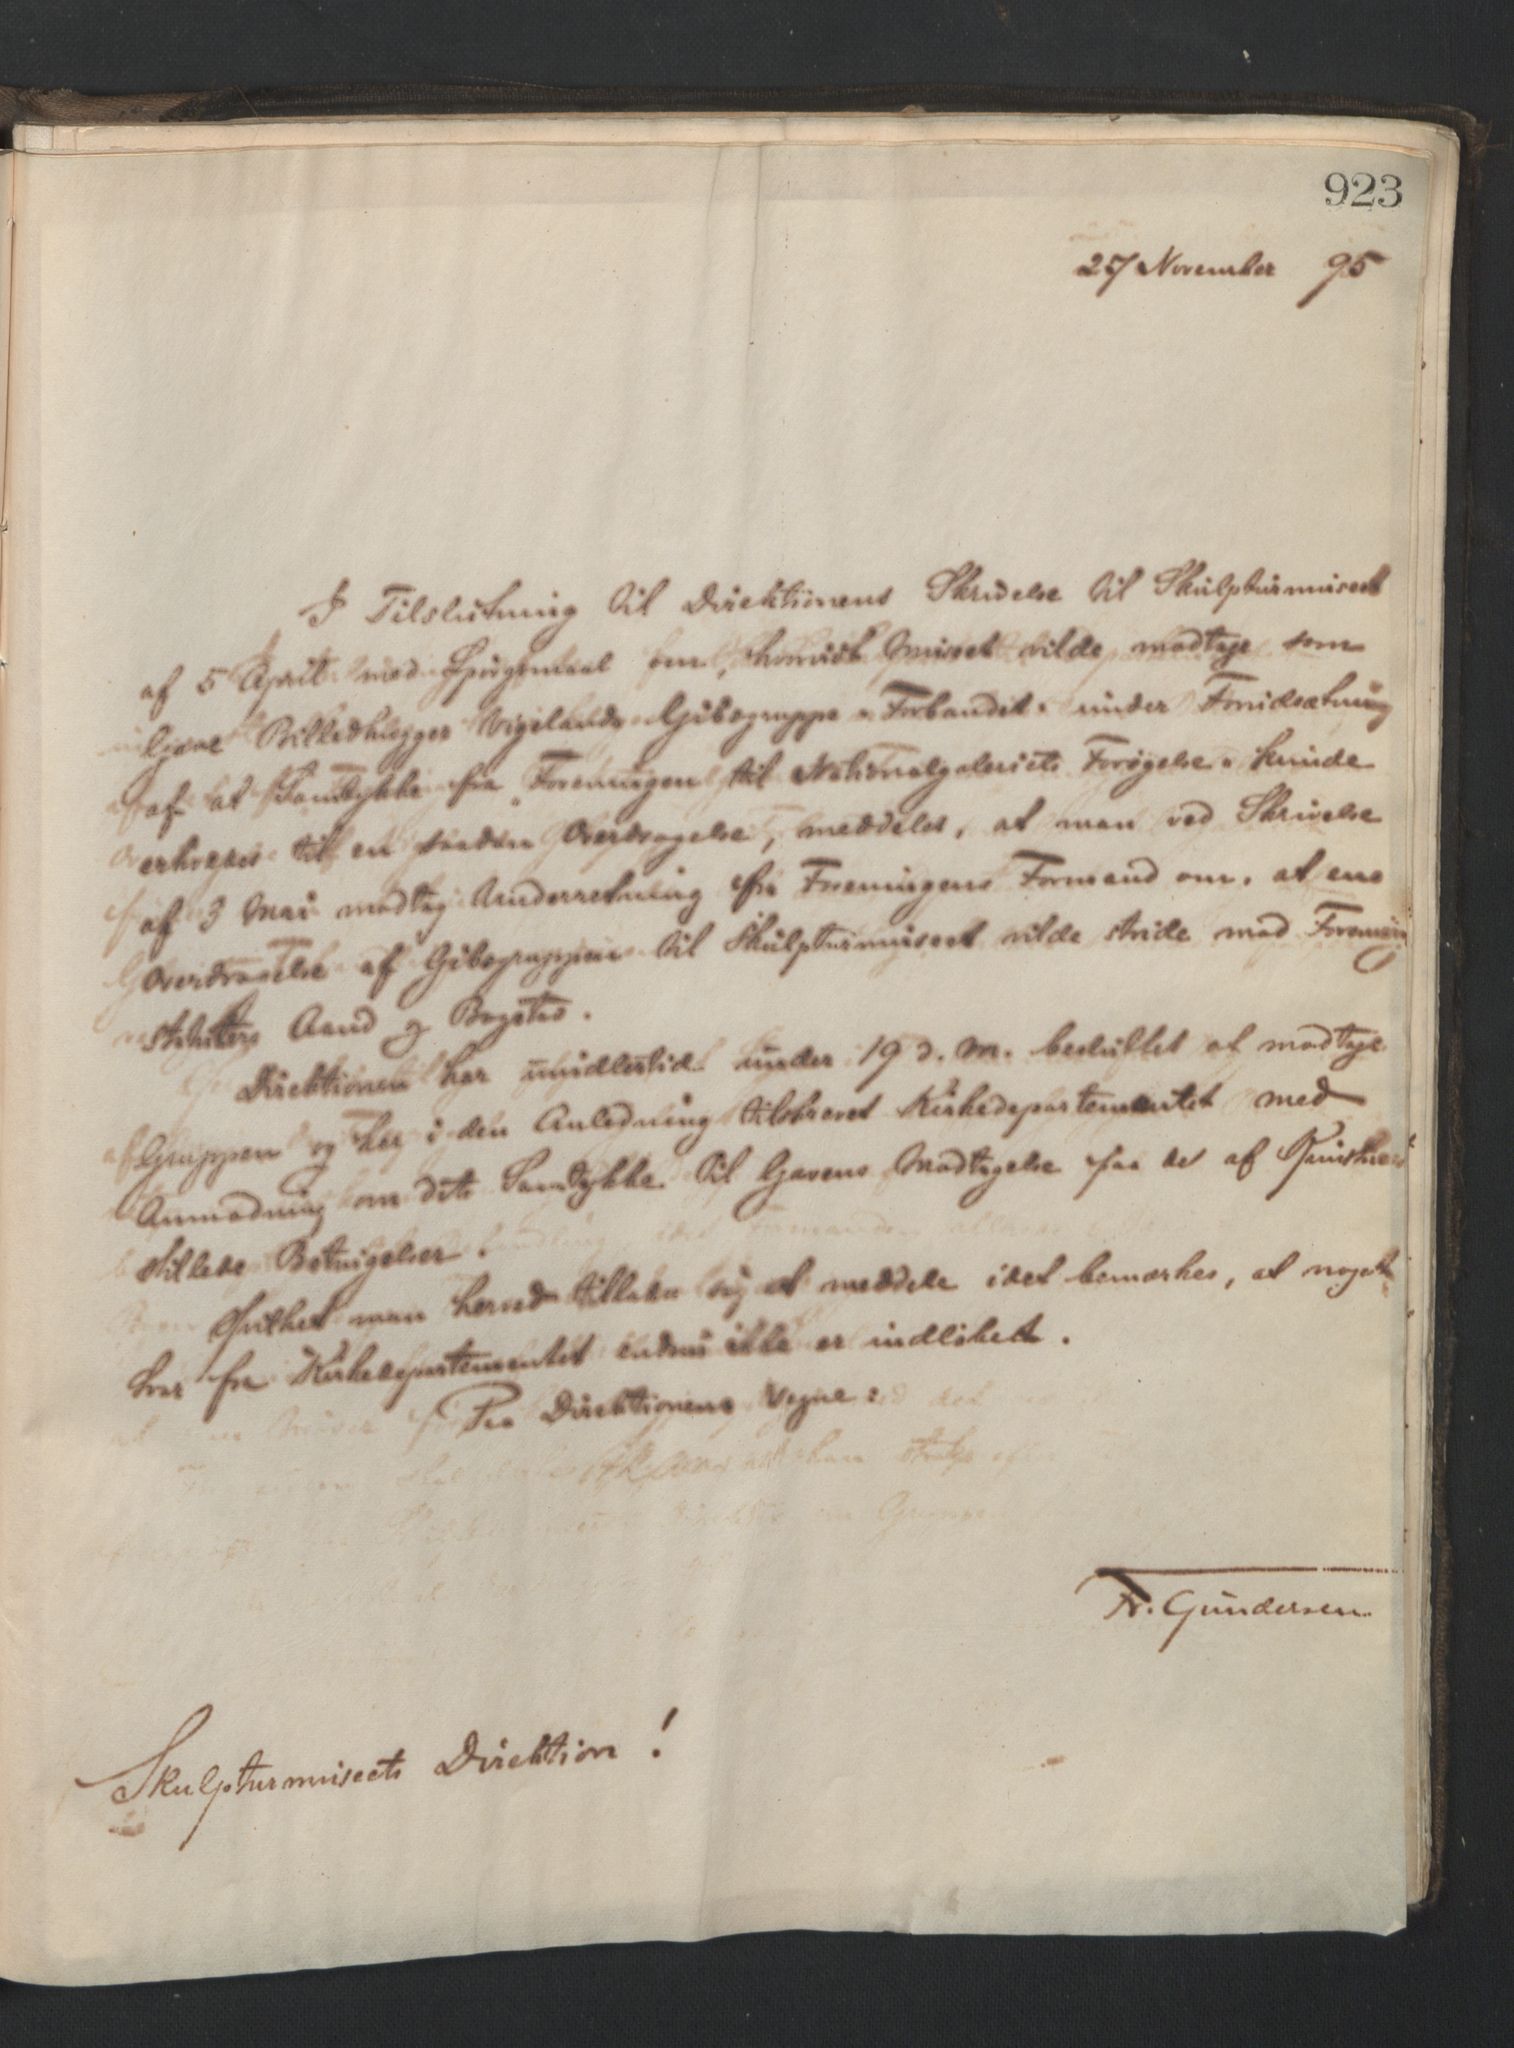 923
27 November 95
I Tilslutning til Direktionens Skrivelse til Skulpturmuseet
af 5 April med Spørgsmaal om, hvorvidt Museet vilde modtage som
Gave Billedhugger Vigelands Gibsgruppe "Forbandet" under Forudsætning
af at Samtykke fra "Foreningen til Nationalgaleriets Forøgelse" kunde
erhverves til en saadan Overdragelse, meddeles, at man ved Skrivelse
af 3 Mai modtog Underretning fra Foreningens Formand om, at en
Overdragelse af Gibsgruppen til Skulpturmuseet vilde stride mod Forenings
statuters Aand og Bogstav.
Direktionen har imidlertid under 19 d. M. besluttet at modtage
Gruppen og har i den Anledning tilskrevet Kirkedepartementet med
Anmodning om dets Samtykke til Gavens Modtagelse paa de af
stillede Betingelser.
Hvilket man herved tillader sig at meddele idet bemærkes, at noget
Svar fra Kirkedepartementet endnu ikke er indløbet.
Paa Direktionens Vegne:
Fr. Gundersen
Skulpturmuseets Direktion!